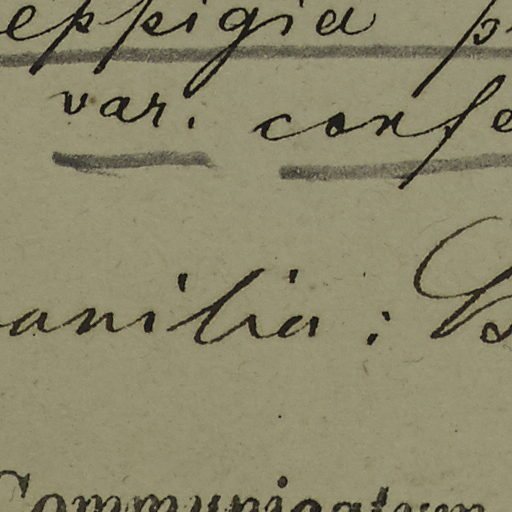 eppigia p
var. confe
anilia : B
Communicatum